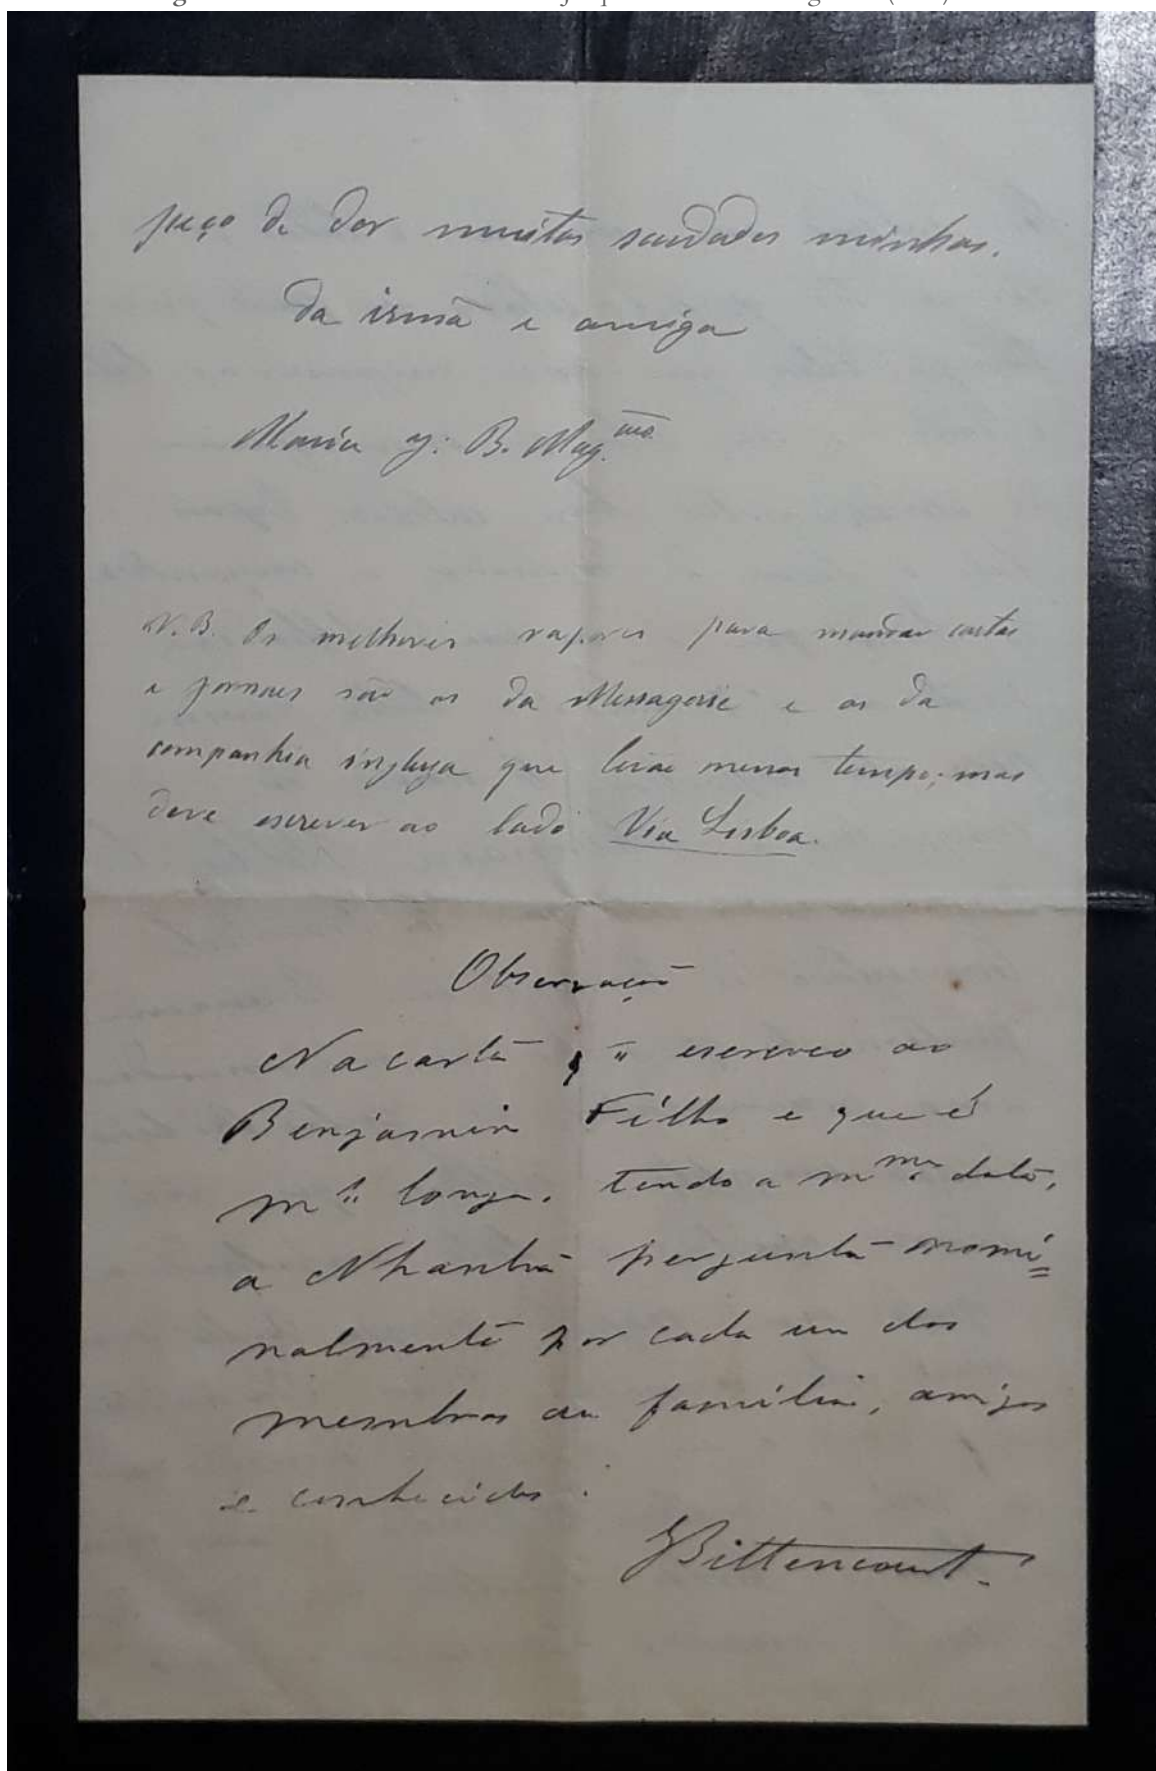 peço de dar muitas saudades minhas.
Da irmã e amiga
Maria J: B. Mag.ães
N.B. Os melhores vapores para mandar cartas
e jornaes são os da Messagerie e os da
companhia ingleza que levão menos tempo; mas
deve escrever ao lado Via Lisboa.
Observação
Na carta q̃ escreveo ao
Benjamin Filho e que é
mto longa, tendo a mma data,
a Nhanhã pergunta nomi=
nalmente por cada um dos
membros da familia, amigos
e conhecidos.
Bittencourt.